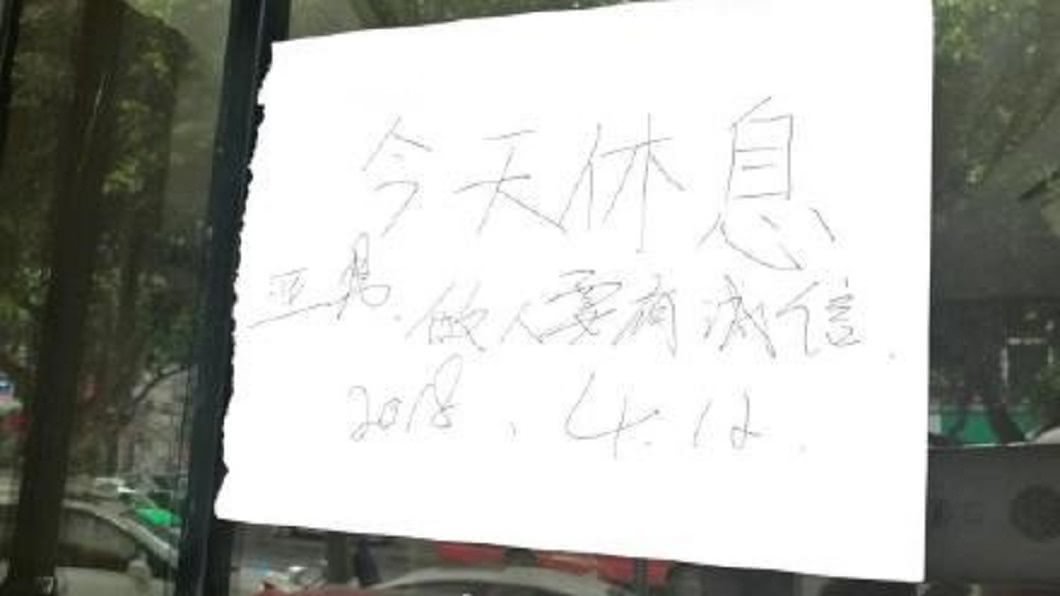 今天休息
做人要有诚信.
2018.4.12.